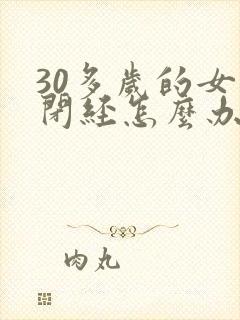 30多歲的女
閉經怎麼办
肉丸